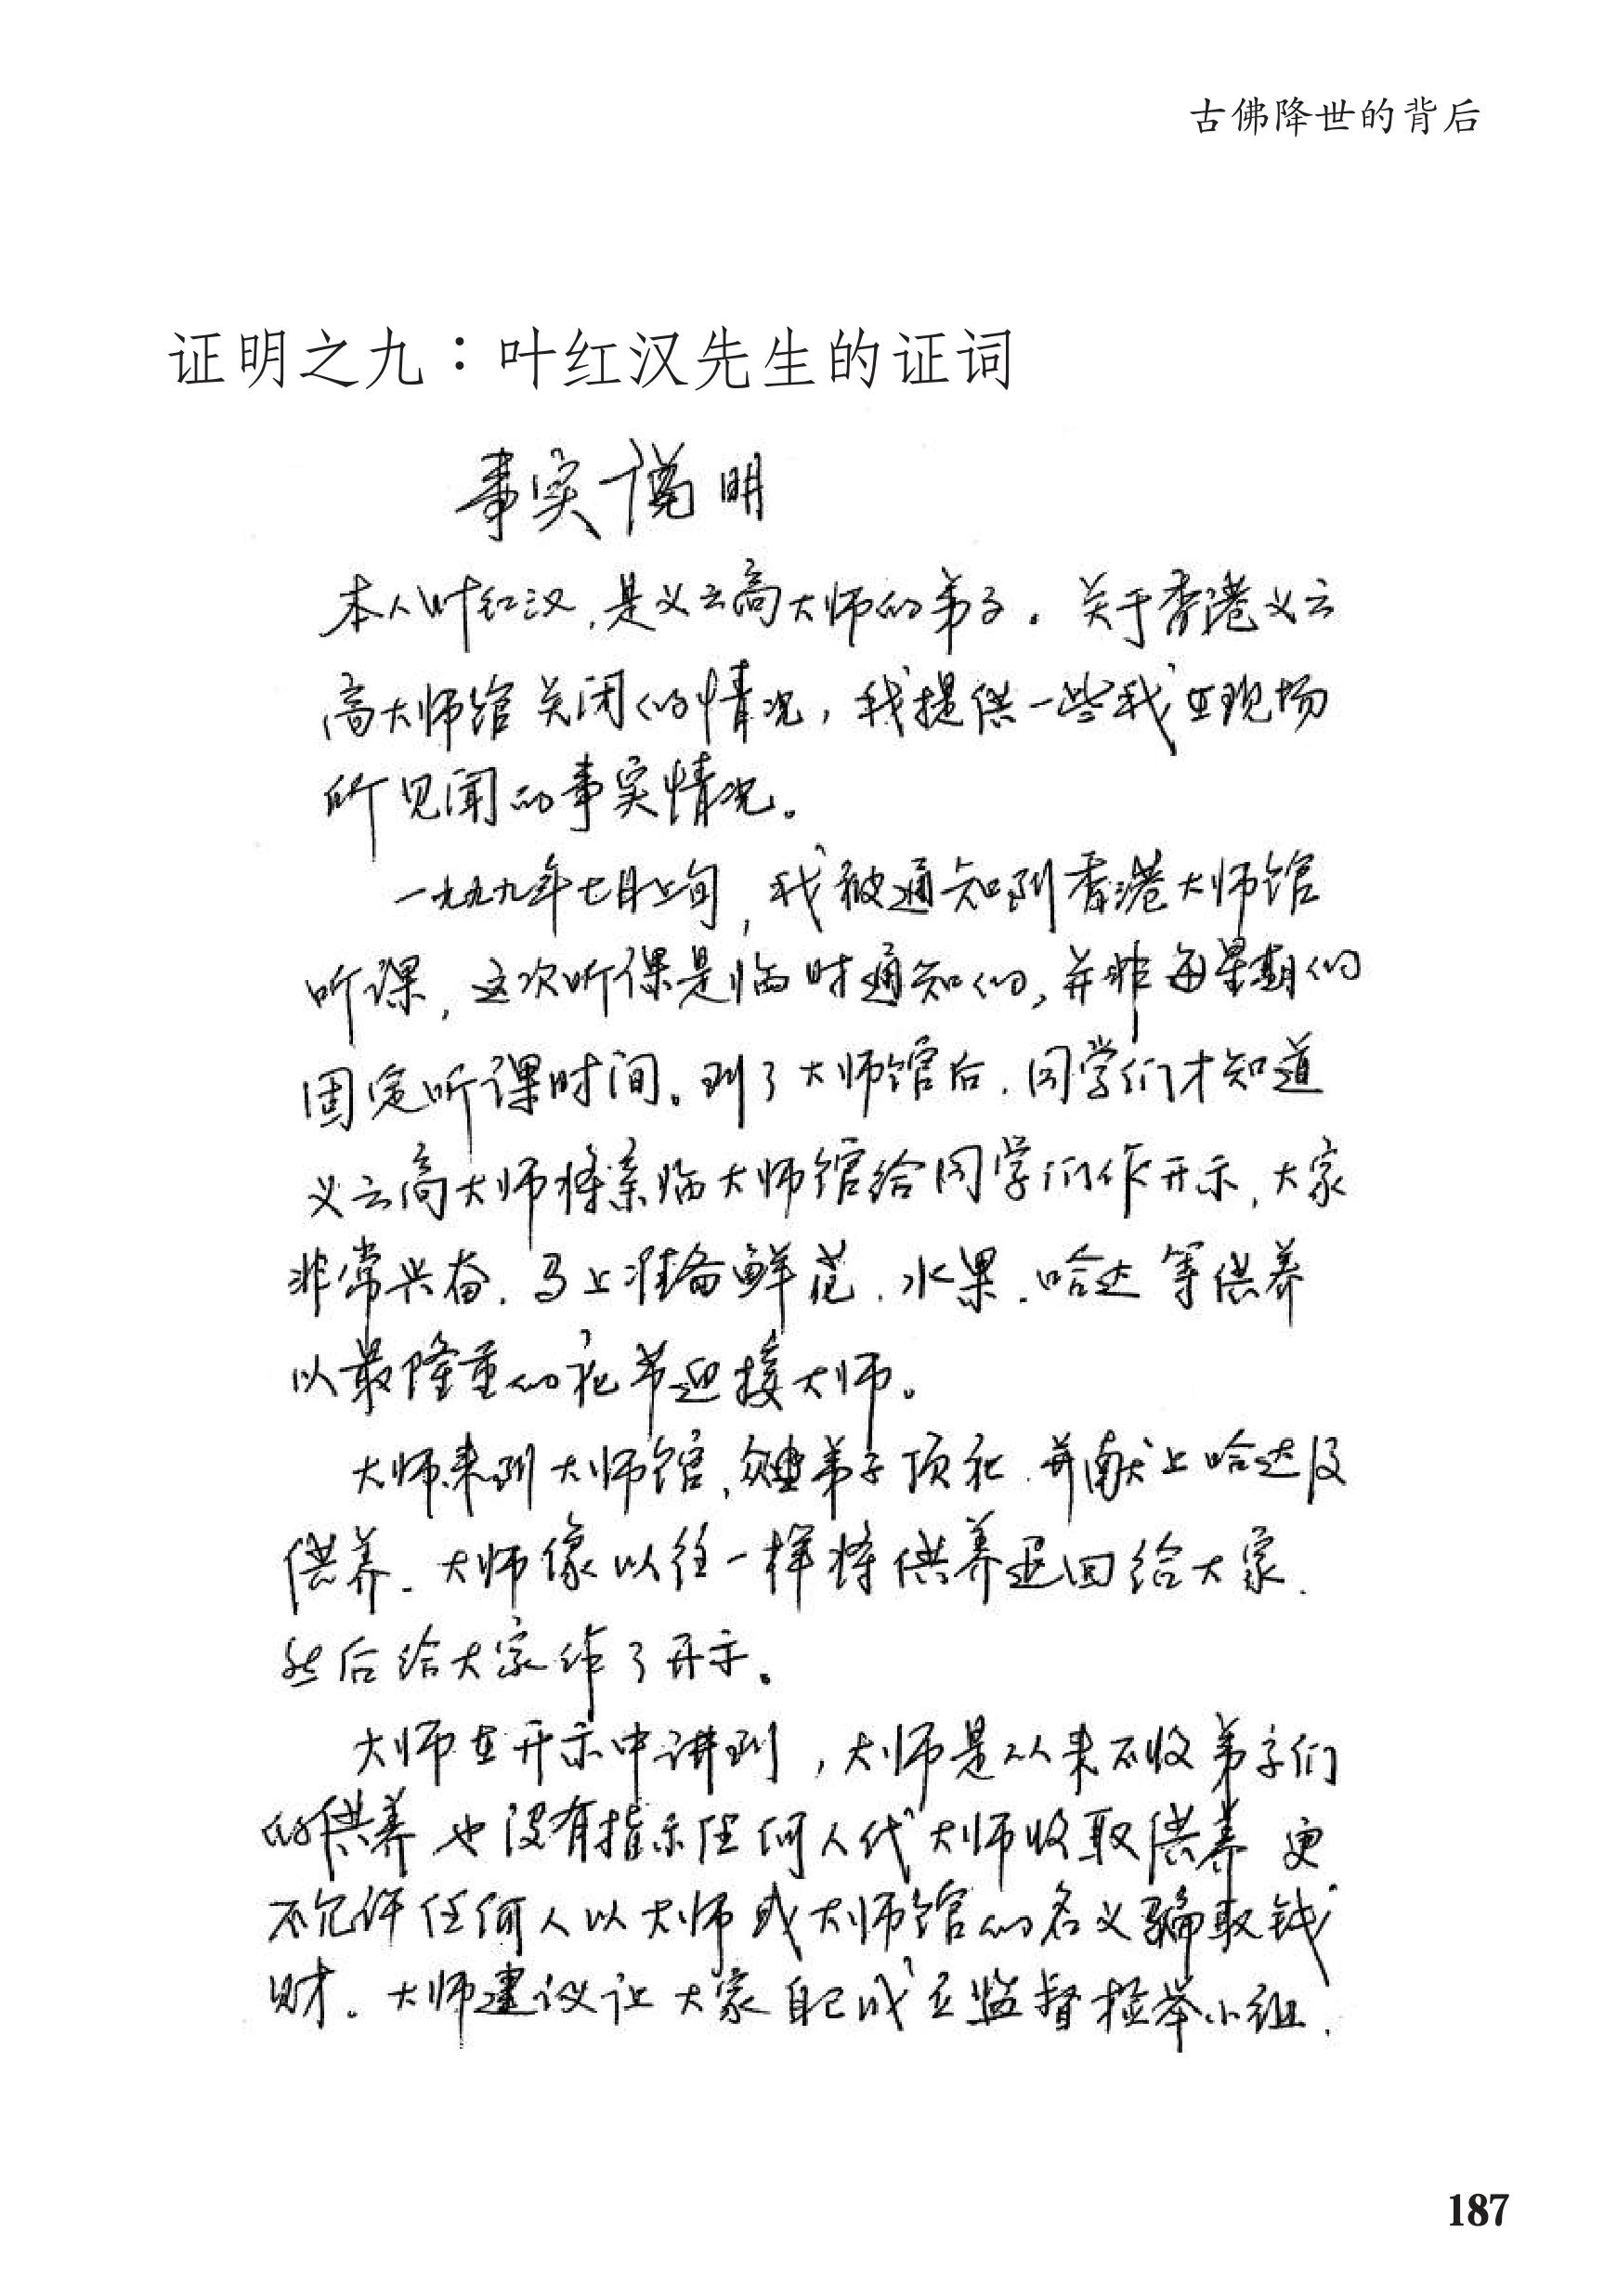 古佛降世的背后
证明之九：叶红汉先生的证词
事实说明
本人叶红汉,是义云高大师的弟子。关于香港义云
高大师馆关闭的情况,我提供一些我在现场
所见闻的事实情况。
一九九九年七月上旬,我被通知到香港大师馆
听课,这次听课是临时通知的,并非每星期的
固定听课时间。到了大师馆后.同学们才知道
义云高大师将亲临大师馆给同学们作开示,大家
非常兴奋.马上准备鲜花.水果.哈达等供养
以最隆重的礼节迎接大师。
大师来到大师馆,众弟子顶礼.并献上哈达及
供养.大师像以往一样将供养退回给大家.
然后给大家作了开示。
大师在开示中讲到,大师是从来不收弟子们
的供养也没有指示任何人代大师收取供养更
不允许任何人以大师或大师馆的名义骗取钱
财。大师建议让大家自己成立监督检举小组.
187